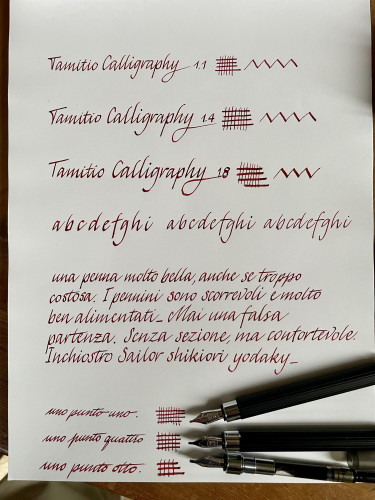 Tamitio Calligraphy 1.1
Tamitio Calligraphy 1.4
Tamitio Calligraphy 1.8
abcdefghi abcdefghi abcdefghi
una penna molto bella, anche se troppo
costosa. I pennini sono scorrevoli e molto
ben alimentati_ Mai una falsa
partenza. Senza sezione, ma confortevole.
Inchiostro Sailor shikiori yodaky_
uno punto uno.
uno punto quattro
uno punto otto.